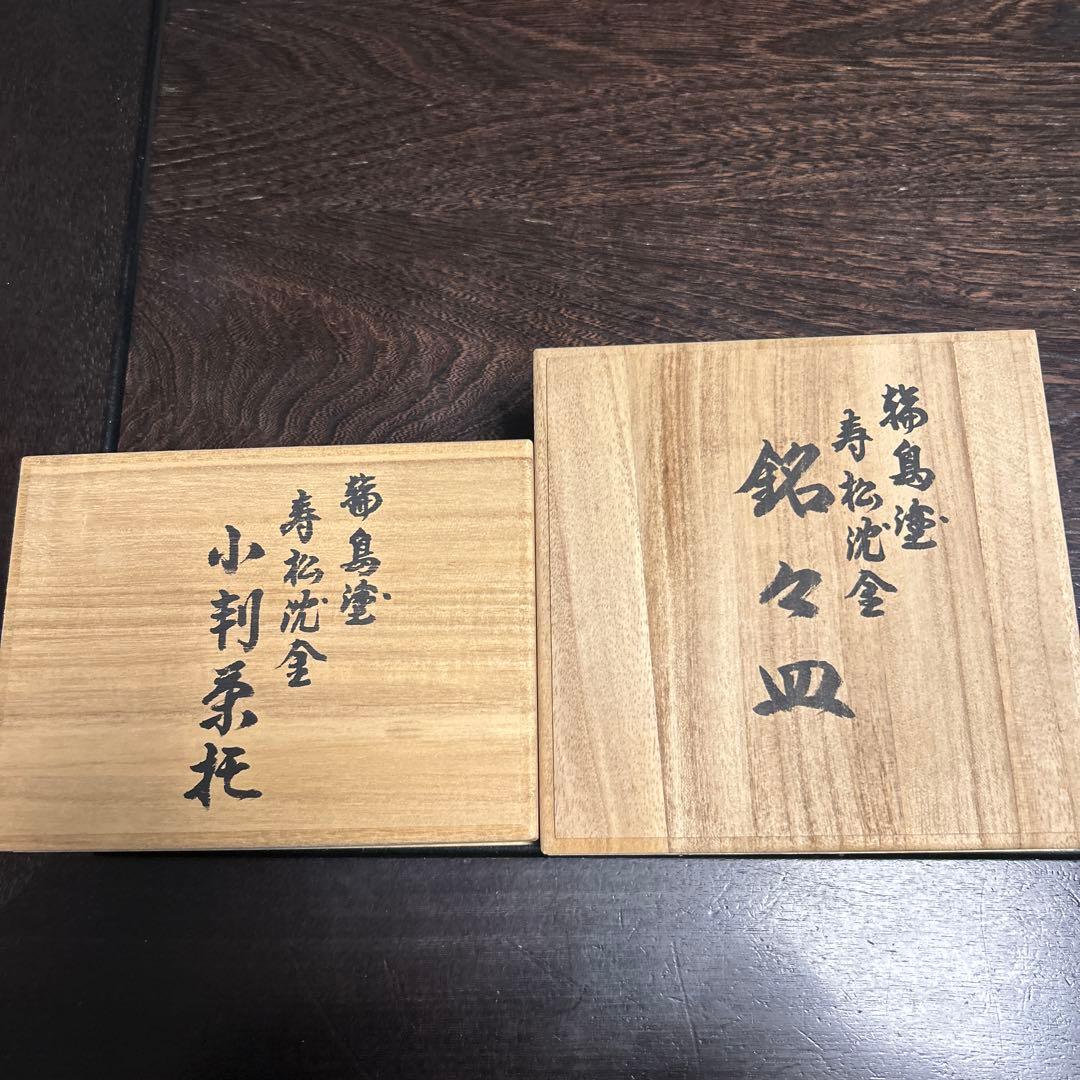 輪島塗
寿松沈金
小判茶托
輪島塗
寿松沈金
銘々皿